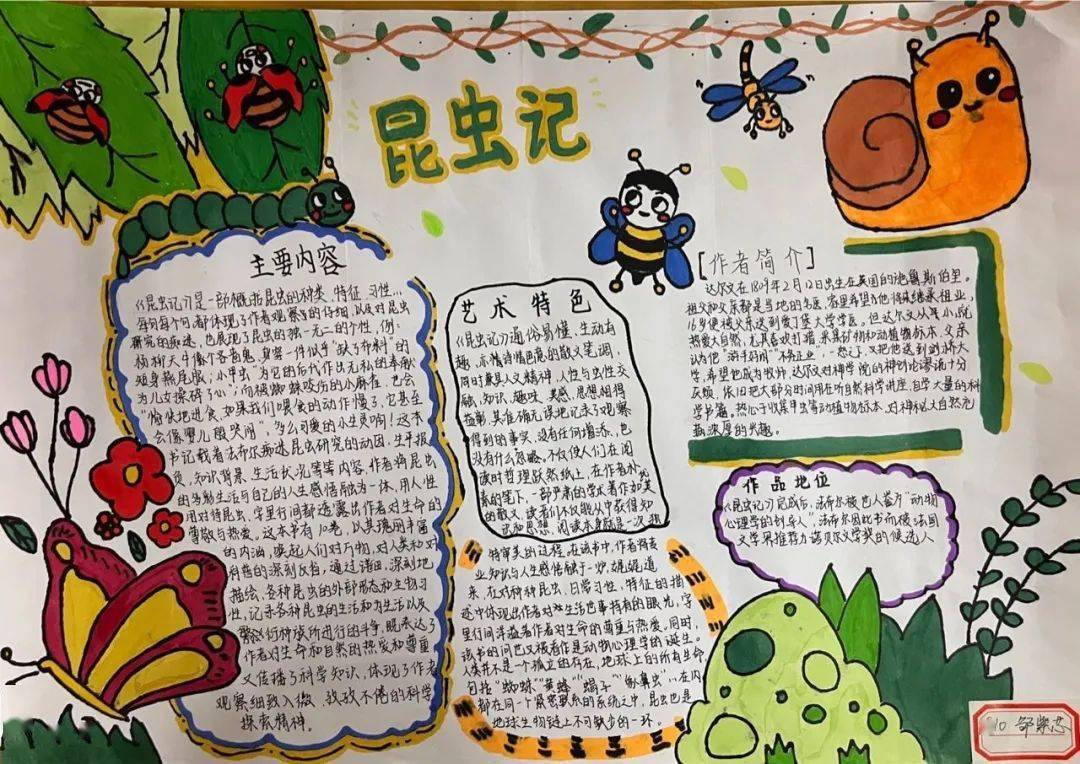 昆虫记
主要内容
《昆虫记》是一部概括昆虫的种类、特征、习性…
每句每个词都体现了作者观察的仔细,以及对昆虫
研究的痴迷,也展现了昆虫的独一无二的个性,例:
杨柳天牛像个吝啬鬼,身穿一件似乎"缺了布料"的
短身燕尾服;小甲虫"为它的后代作出无私的奉献
为儿女操碎了心";而被蜘蛛咬伤的小麻雀,也会
"愉快地进食,如果我们喂食的动作慢了,它甚至
会像婴儿般哭闹",多么可爱的小生灵啊!这本
书记载着法布尔痴迷昆虫研究的动因、生平抱
负、知识背景、生活状况等等内容,作者将昆虫
的多彩生活与自己的人生感悟融为一体,用人性
去对待昆虫,字里行间都透露出作者对生命的
尊敬与热爱。这本书有10卷,以其瑰丽丰富
的内涵,唤起人们对万物,对人类和对
科普的深刻反省,通过详细、深刻地
描绘各种昆虫的外部形态和生物习
性,记录各种昆虫的生活和为生活以及
繁衍种族所进行的斗争,既表达了
作者对生命和自然的热爱和尊重
又传播了科学知识,体现了作者
观察细致入微、孜孜不倦的科学
探索精神。
艺术特色
《昆虫记》通俗易懂、生动有
趣,亦情诗情画意的散文笔调,
同时兼具人文精神,人性与虫性交
融,知识、趣味、美感、思想相得
益彰,其准确无误地记录了观察
得到的事实,没有任何增添,也
没有什么忽略,不仅使人们在阅
读时哲理跃然纸上,在作者朴
素的笔下,一部严肃的学术著作如美
的散文,读者们不仅能从中获得知
识和思想,阅读本身就是一次独
特审美的过程,在该书中,作者将专
业知识与人生感悟融于一炉,娓娓道
来,在对种种昆虫、日常习性、特征的描
述中体现出作者对生活世事特有的眼光,字
里行间洋溢着作者对生命的尊重与热爱。同时,
该书的问世又被看作是动物心理学的诞生。
人类并不是一个孤立的存在,地球上的所有生命,
包括"蜘蛛""黄蜂""蝎子""象鼻虫"…在内
都在同一个紧密联系的系统之中,昆虫也是
地球生物链上不可缺少的一环。
[作者简介]
达尔文在1809年2月12日出生在英国的施鲁斯伯里。
祖父和父亲都是当地的名医,家里希望他将来继承祖业,
16岁便被父亲送到爱丁堡大学学医。但达尔文从小就
热爱大自然,尤其喜欢打猎、采集矿物和动植物标本,父亲
认为他"游手好闲""不务正业",一怒之下,又把他送到剑桥大
学,希望他成为牧师,达尔文对神学院的神创论谬说十分
反感,依旧把大部分时间用在听自然科学讲座,自学大量的科
学书籍,热心于收集甲虫等动植物标本,对神秘大自然充
满浓厚的兴趣。
作品地位
《昆虫记》完成后,法布尔被世人誉为"动物
心理学的创导人",法布尔因此书而被法国
文学界推荐为诺贝尔文学奖的候选人